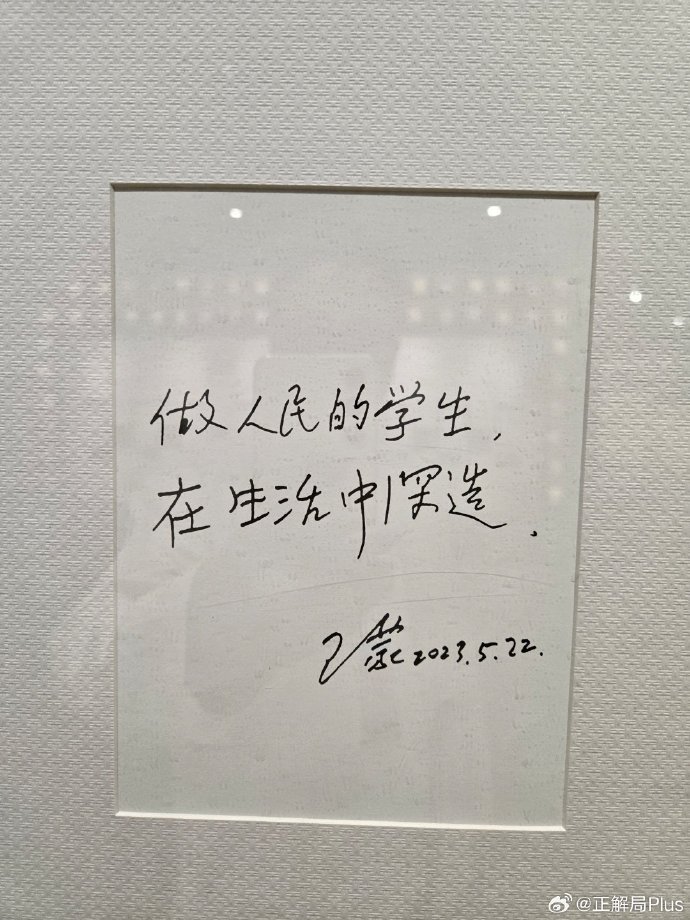 做人民的学生，
在生活中深造.
王蒙2023.5.22.
@正解局Plus